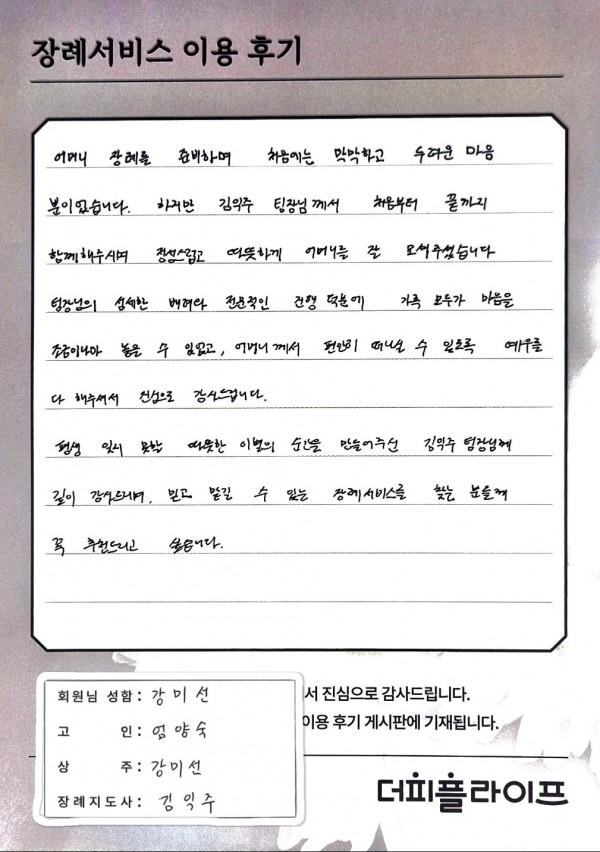 장례서비스 이용 후기
어머니 장례를 준비하며 처음에는 막막하고 두려운 마음
뿐이었습니다. 하지만 김익주 팀장님께서 처음부터 끝까지
함께해주시며 정성스럽고 따뜻하게 어머니를 잘 모셔주셨습니다
팀장님의 섬세한 배려와 전문적인 진행 덕분에 가족 모두가 마음을
조금이나마 놓을 수 있었고, 어머니께서 편안히 떠나실 수 있도록 예우를
다 해주셔서 진심으로 감사드립니다.
평생 잊지 못할 따뜻한 이별의 순간을 만들어주신 김익주 팀장님께
깊이 감사드리며, 믿고 맡길 수 있는 장례서비스를 찾는 분들께
꼭 추천드리고 싶습니다.
서 진심으로 감사드립니다.
이용 후기 게시판에 기재됩니다.
회원님 성함 : 강미선
고 인 : 엄양숙
상 주 : 강미선
장례지도사 : 김익주
더피플라이프